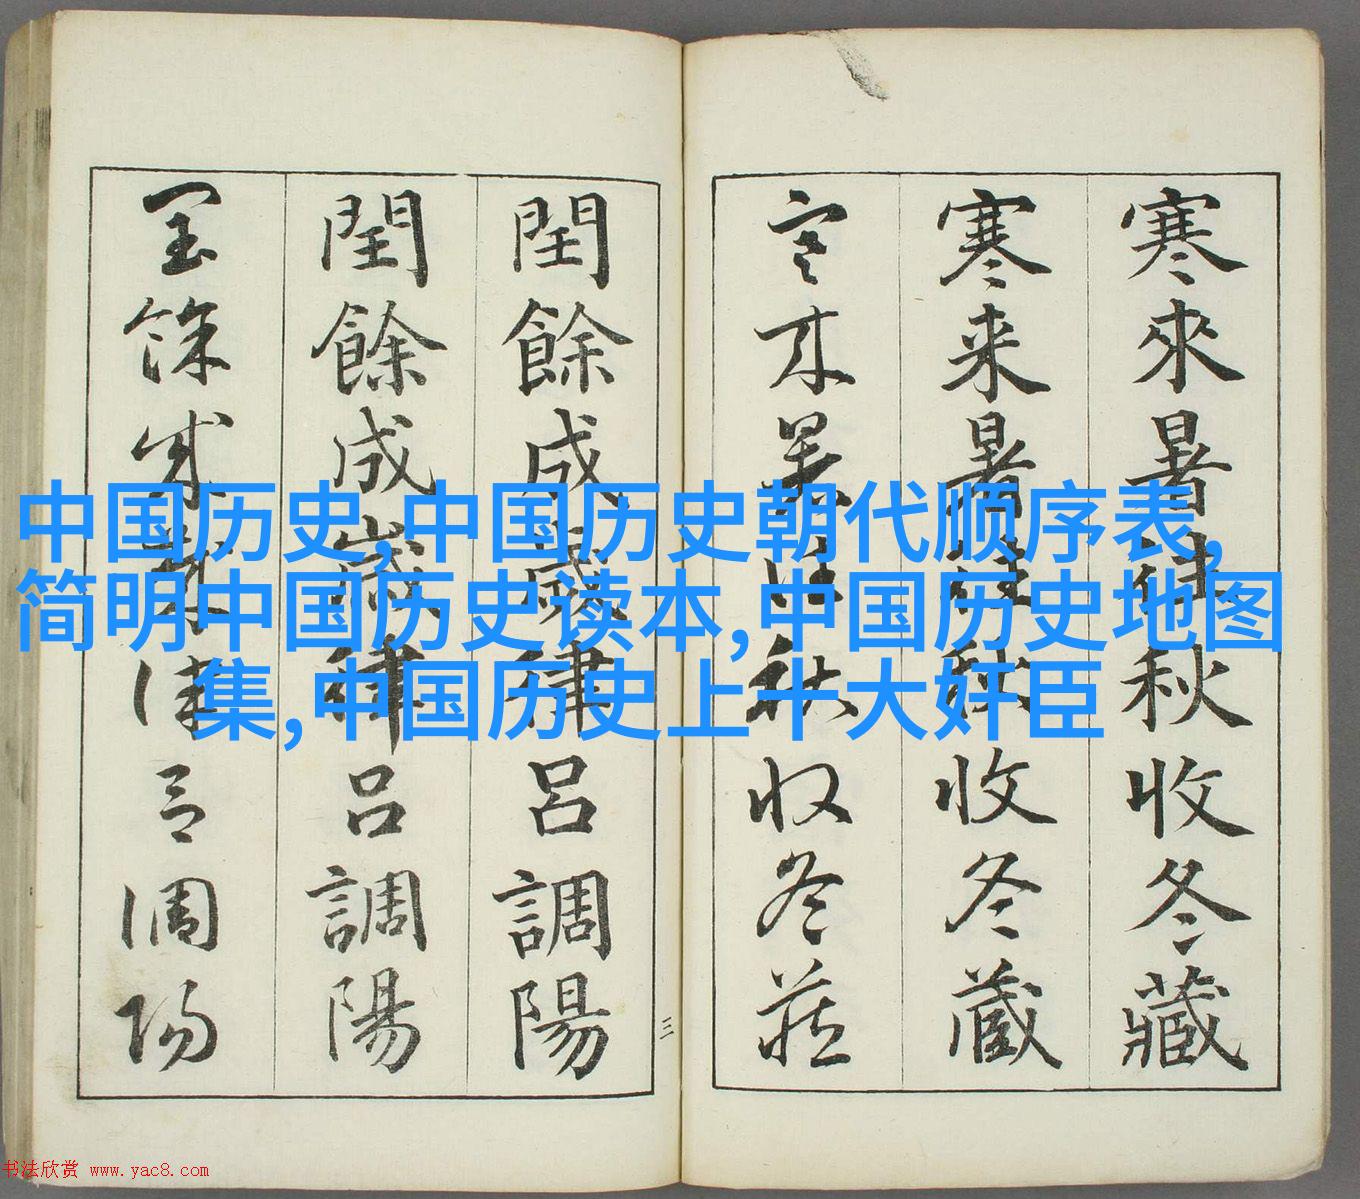 寒來暑往秋收冬藏
寒来暑往秋收冬蔵
閏餘成歲律呂調陽
閏餘成歲律呂調陽
三
中国历史,中国历史朝代顺序表,
简明中国历史读本,中国历史地图
集,中国历史上十大奸臣
书法欣赏 www.yac8.com